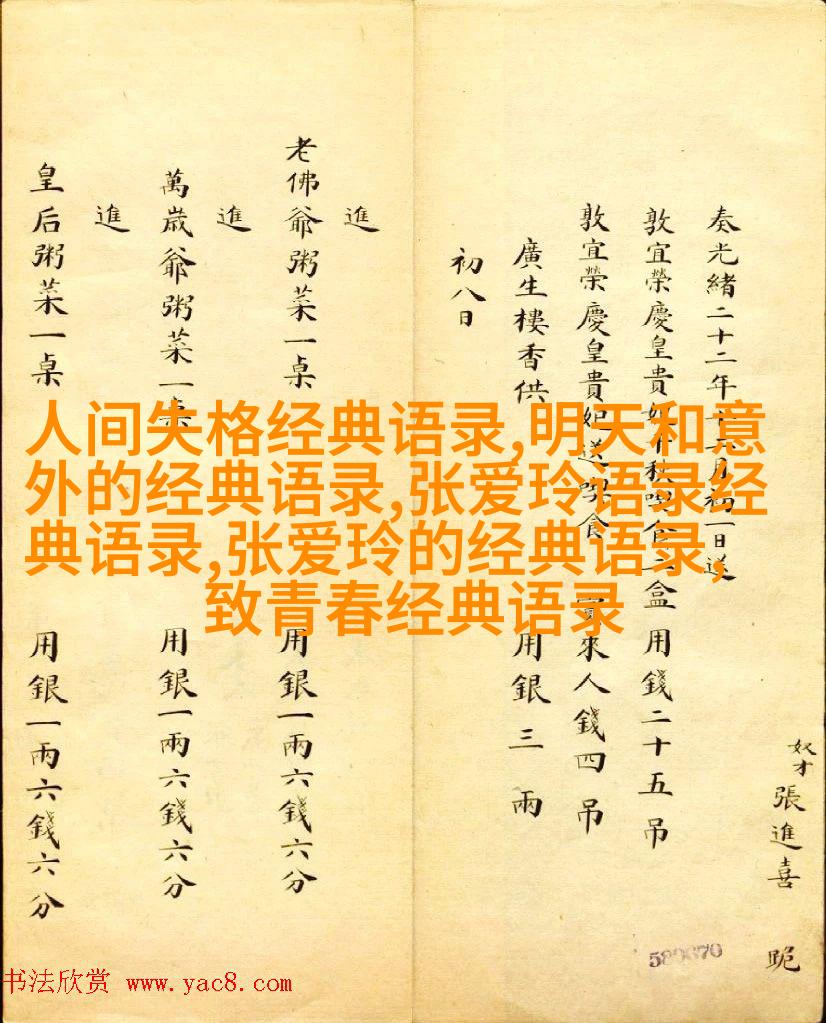 奴才張進喜 跪
奏光緒二十二年 月初一日送
敦宜榮慶皇貴妃千秋喫食二盒用錢二十五吊
敦宜榮慶皇貴妃送喫食 來人錢四吊
廣生樓香供 用銀三兩
初八日
進
老佛爺粥菜一桌 用銀一兩六錢六分
進
萬歲爺粥菜一桌 用銀一兩六錢六分
進
皇后粥菜一桌 用銀一兩六錢六分
人间失格经典语录,明天和意
外的经典语录,张爱玲语录经
典语录,张爱玲的经典语录,
致青春经典语录
书法欣赏 www.yac8.com